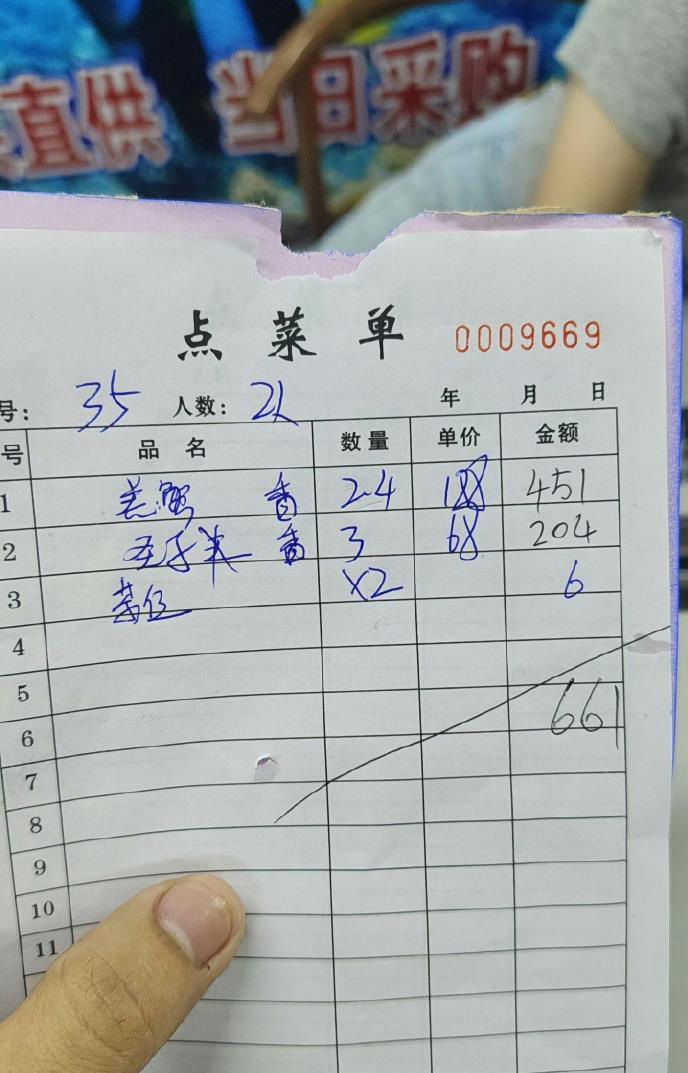 直供 当日采购
点菜单 0009669
号: 35 人数: 2人 年 月 日
号 品名 数量 单价 金额
1 羔蟹 2.4 188 451
2 3 68 204
3 茶位 ×2 6
4
5
661
6
7
8
9
10
11